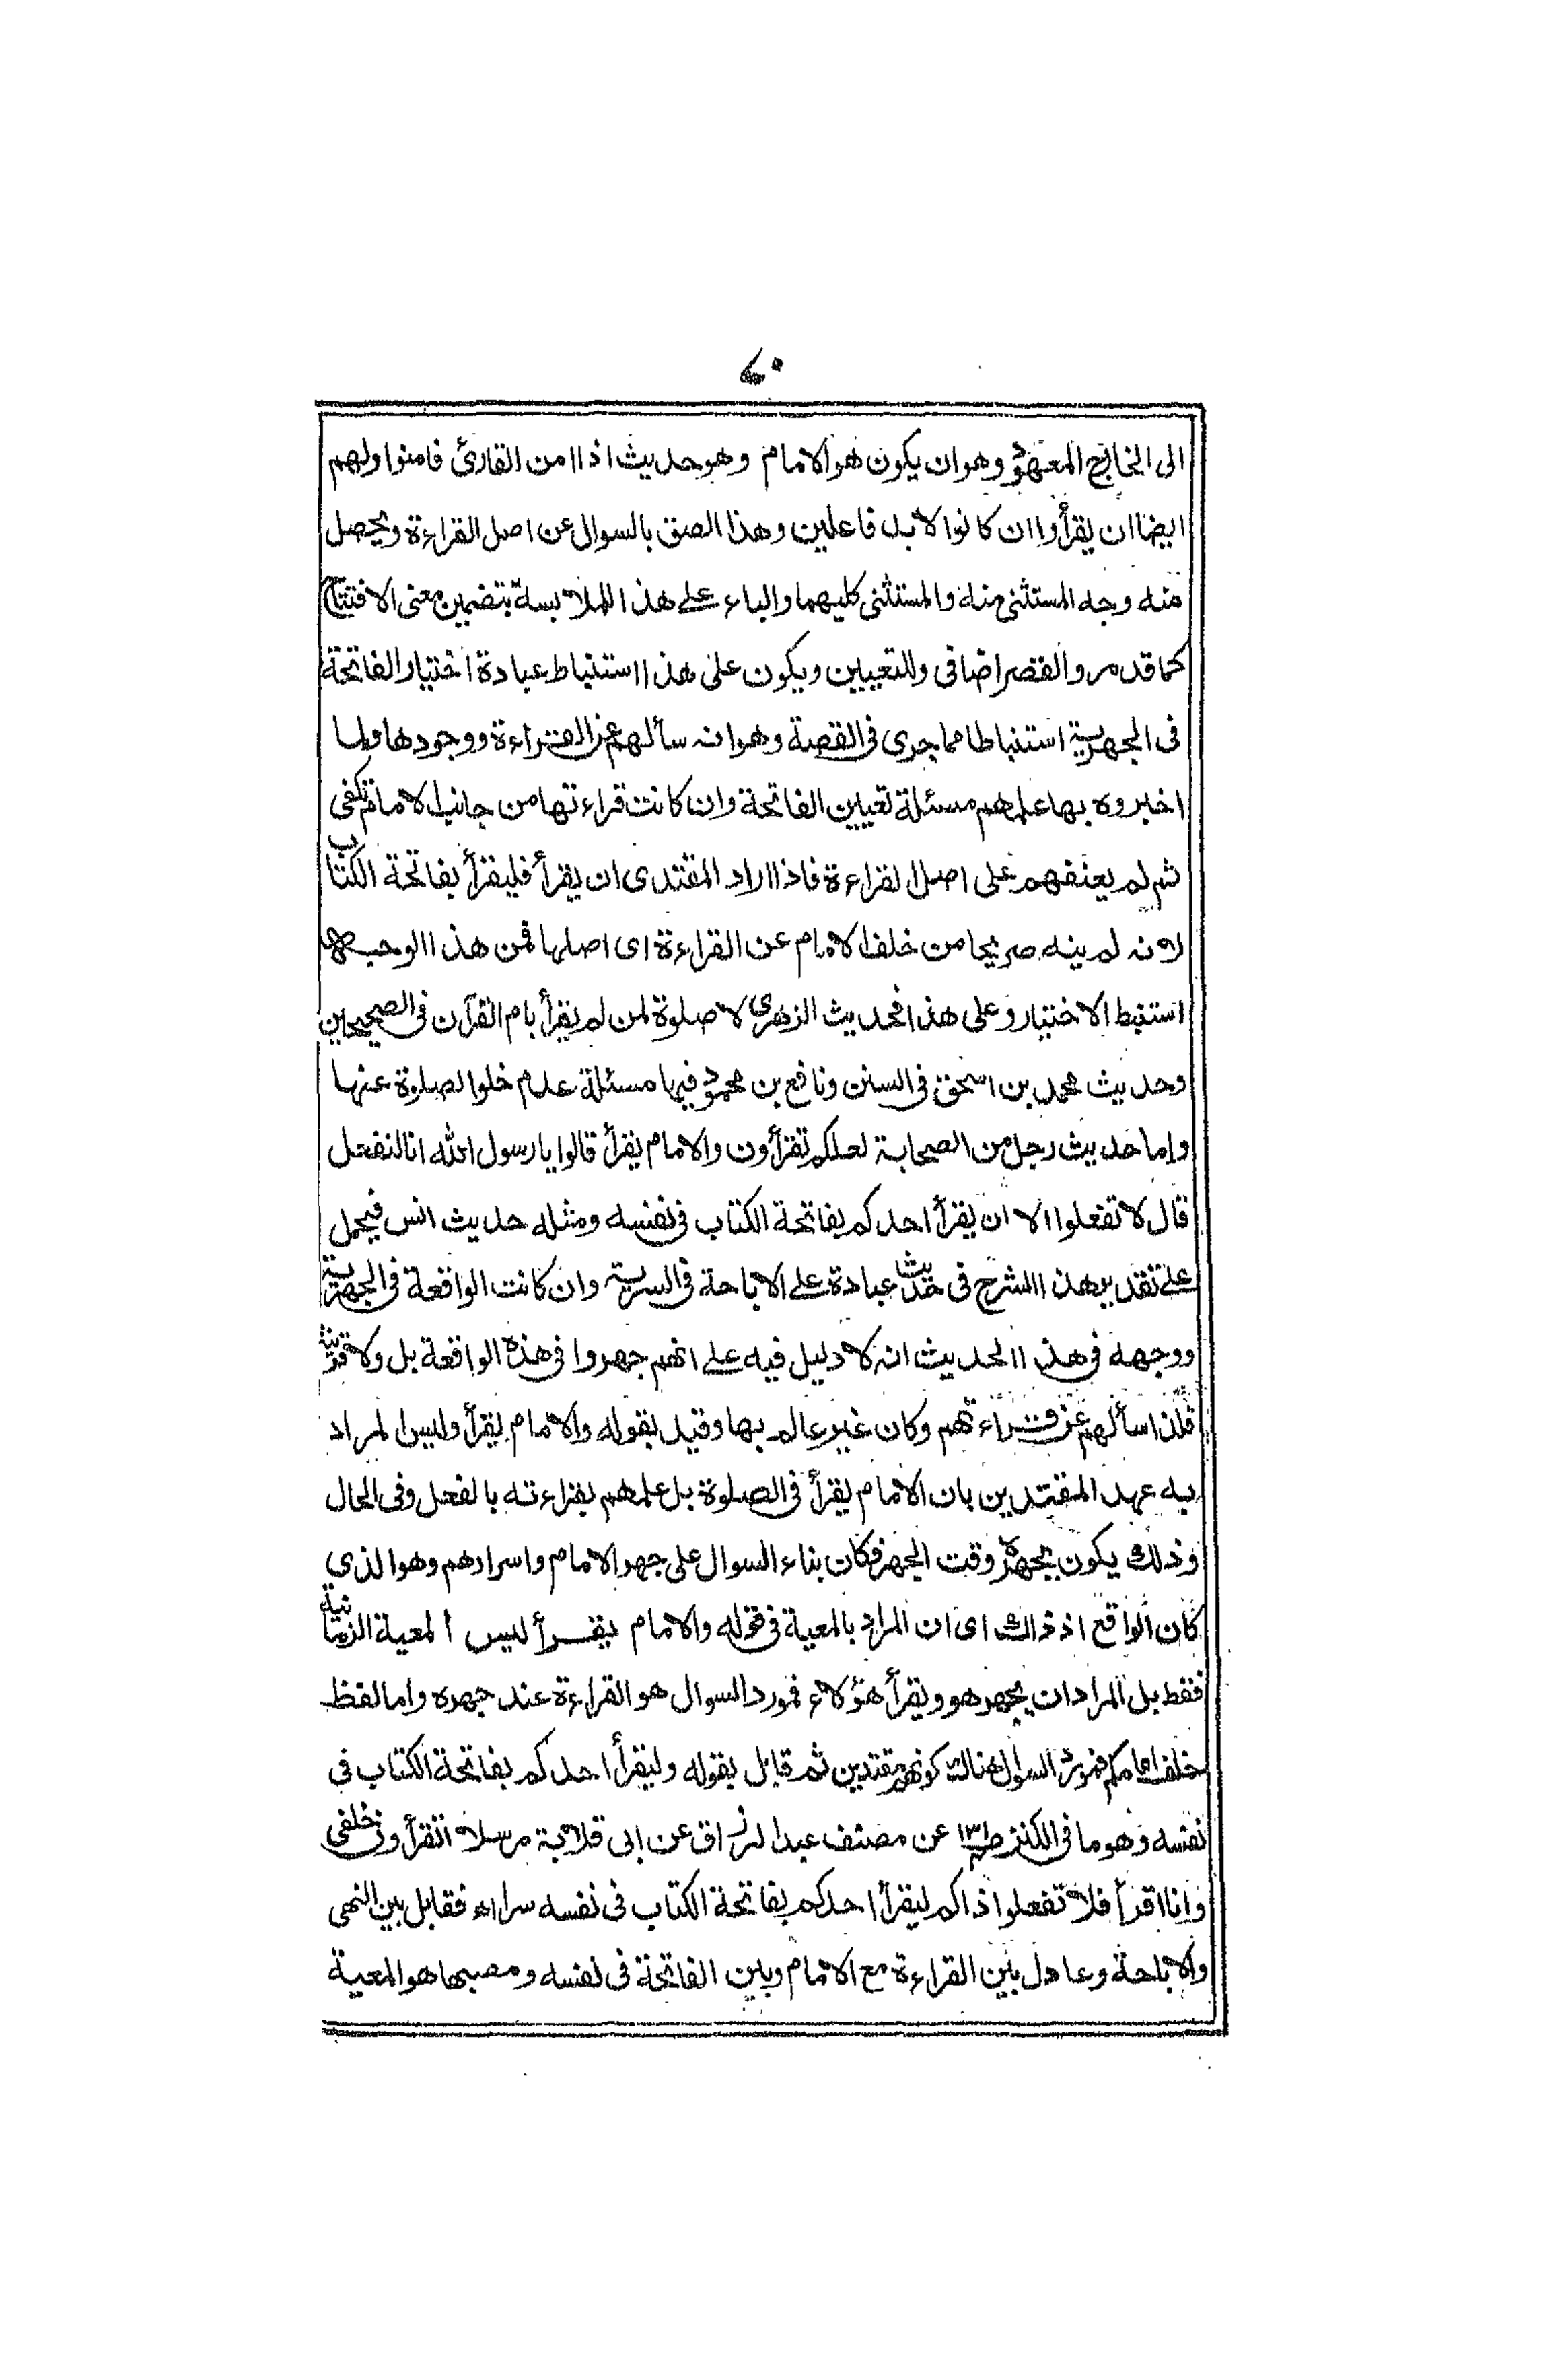 ۷۰
الى الخارج المعهود وهو ان يكون هو الامام وهو حديث اذا امن القارئ فامنوا ولهم
ايضا ان يقرأوا ان كانوا لابد فاعلين وهذا الصق بالسوال عن اصل القراءة ويحصل
منه وجه المستثنى منه والمستثنى كليهما والباء على هذا للملابسة بتضمين معنى الافتتاح
كما قد مر والقصر اضافى وللتعيين ويكون على هذا استنباط عبادة اختيار الفاتحة
فى الجهرية استنباطا مما جرى فى القصة وهو انه سألهم عن القراءة ووجودها ولما
اخبروه بها علمهم مسئلة تعيين الفاتحة وان كانت قراءتها من جانب الامام تكفى
ثم لم يعنفهم على اصل القراءة فاذا اراد المقتدى ان يقرأ فليقرأ بفاتحة الكتاب
لانه لم ينه صريحا من خلف الامام عن القراءة اى اصلها فمن هذا الوجه
استنبط الاختيار وعلى هذا فحديث الزهرى لا صلوة لمن لم يقرأ بام القرآن فى الصحيحين
وحديث محمد بن اسحق فى السنن ونافع بن محمود فيها مسئلة عدم خلو الصلوة عنها
واما حديث رجل من الصحابة لعلكم تقرأون والامام يقرأ قالوا يا رسول الله انا لنفعل
قال لا تفعلوا الا ان يقرأ احدكم بفاتحة الكتاب فى نفسه ومثله حديث انس فيحمل
على تقدير هذا الشرح فى حديث عبادة على الاباحة فى السرية وان كانت الواقعة فى الجهرية
ووجهه فى هذا الحديث انه لا دليل فيه على انهم جهروا فى هذه الواقعة بل ولا قرينة
فلذا سألهم عن قراءتهم وكان غير عالم بها وقيد بقوله والامام يقرأ وليس المراد
به عهد المقتدين بان الامام يقرأ فى الصلوة بل علمهم بقراءته بالفعل وفى الحال
وذلك يكون بجهره وقت الجهر فكان بناء السوال على جهر الامام واسرارهم وهو الذى
كان الواقع اذ ذاك اى ان المراد بالمعية فى قوله والامام يقرأ ليس المعية الزمانية
فقط بل المراد ان يجهر هو ويقرأ هؤلاء فمورد السوال هو القراءة عند جهره واما لفظ
خلف امامكم فمورد السوال هناك كونهم مقتدين ثم قابل بقوله وليقرأ احدكم بفاتحة الكتاب فى
نفسه وهو ما فى الكنز عن مصنف عبد الرزاق عن ابى قلابة مرسلا اتقرأون خلفى
وانا اقرأ فلا تفعلوا ذاكم ليقرأ احدكم بفاتحة الكتاب فى نفسه سرا اه فقابل بين النهى
والاباحة وعادل بين القراءة مع الامام وبين الفاتحة فى نفسه ومصبها هو المعية